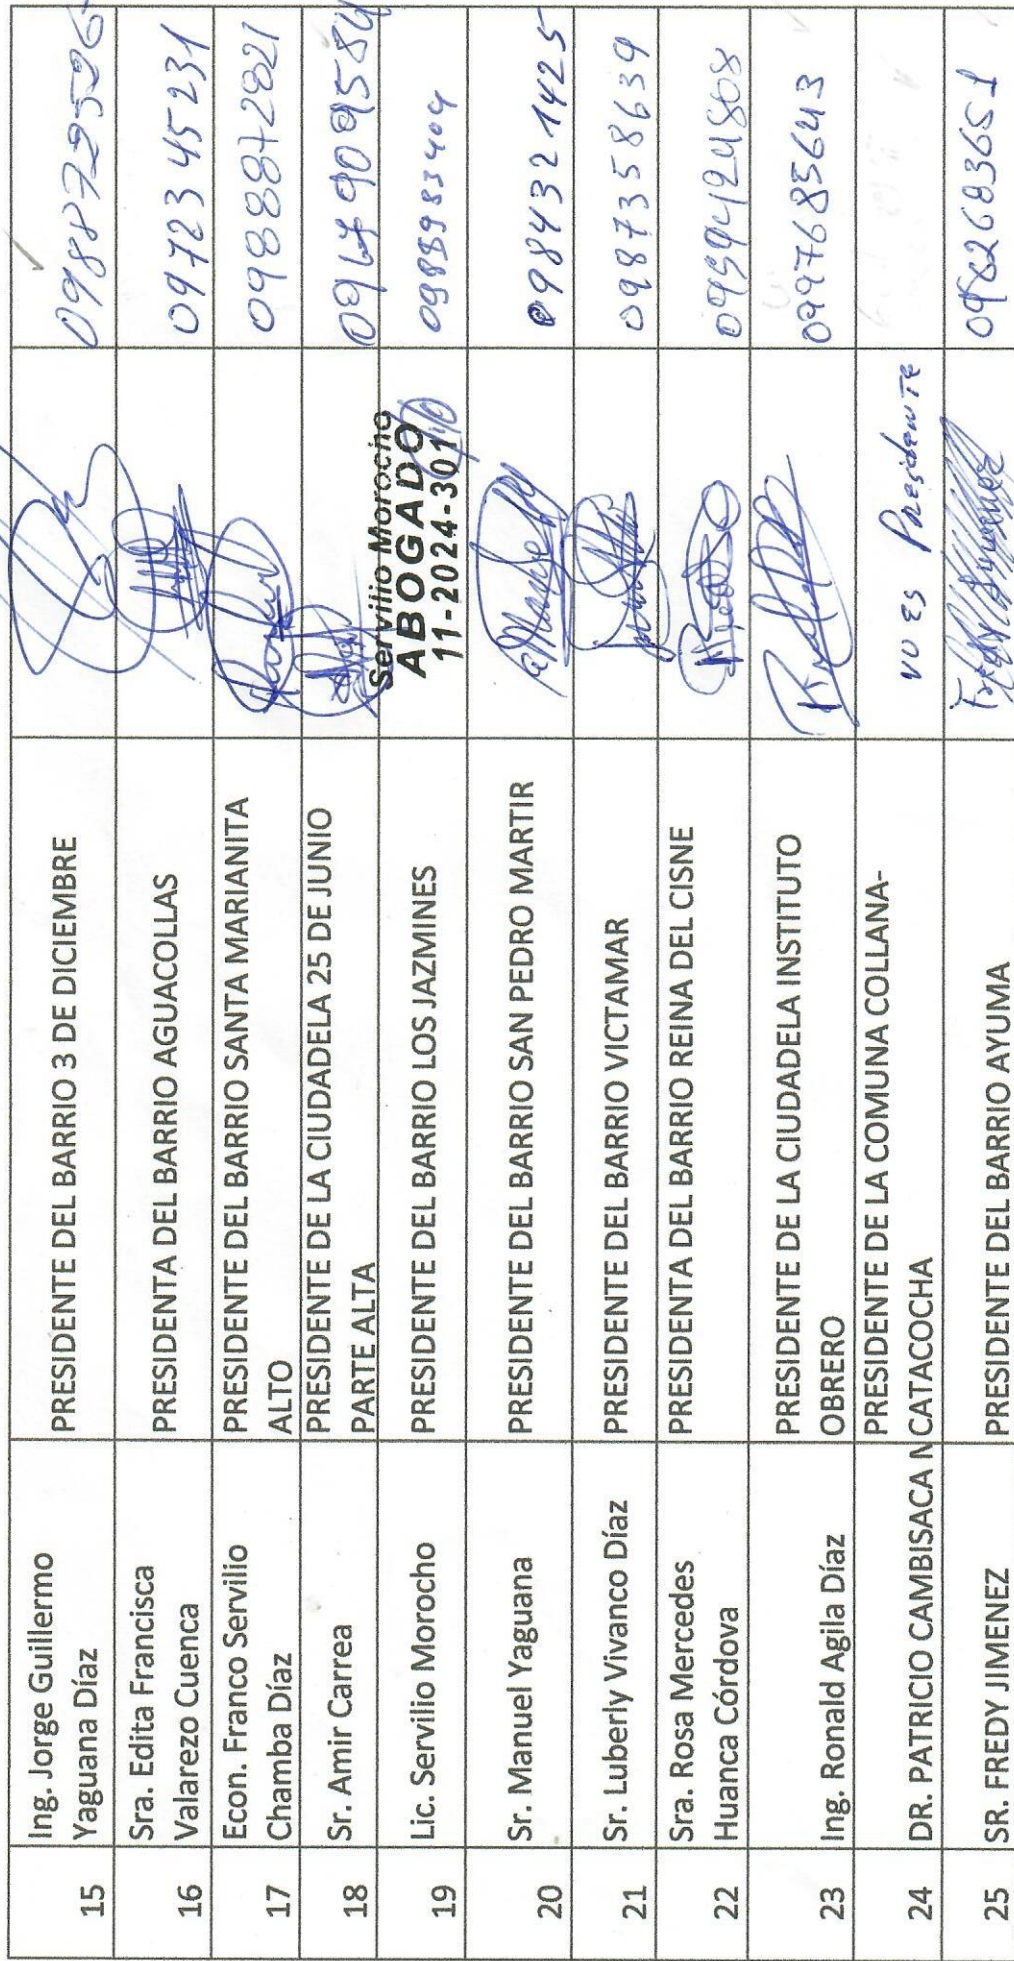 15 Ing. Jorge Guillermo
Yaguana Díaz
PRESIDENTE DEL BARRIO 3 DE DICIEMBRE
16 Sra. Edita Francisca
Valarezo Cuenca
PRESIDENTA DEL BARRIO AGUACOLLAS
0972345231
17 Econ. Franco Servilio
Chamba Díaz
PRESIDENTE DEL BARRIO SANTA MARIANITA
ALTO
0988872821
18 Sr. Amir Carrea
PRESIDENTE DE LA CIUDADELA 25 DE JUNIO
PARTE ALTA
19 Lic. Servilio Morocho
PRESIDENTE DEL BARRIO LOS JAZMINES
Servilio Morocho
ABOGADO
11-2024-301
20 Sr. Manuel Yaguana
PRESIDENTE DEL BARRIO SAN PEDRO MARTIR
0984321425
21 Sr. Luberly Vivanco Díaz
PRESIDENTE DEL BARRIO VICTAMAR
0987358639
22 Sra. Rosa Mercedes
Huanca Córdova
PRESIDENTA DEL BARRIO REINA DEL CISNE
23 Ing. Ronald Agila Díaz
PRESIDENTE DE LA CIUDADELA INSTITUTO
OBRERO
0997685643
24 DR. PATRICIO CAMBISACA N
PRESIDENTE DE LA COMUNA COLLANA-
CATACOCHA
NO ES Presidente
25 SR. FREDY JIMENEZ
PRESIDENTE DEL BARRIO AYUMA